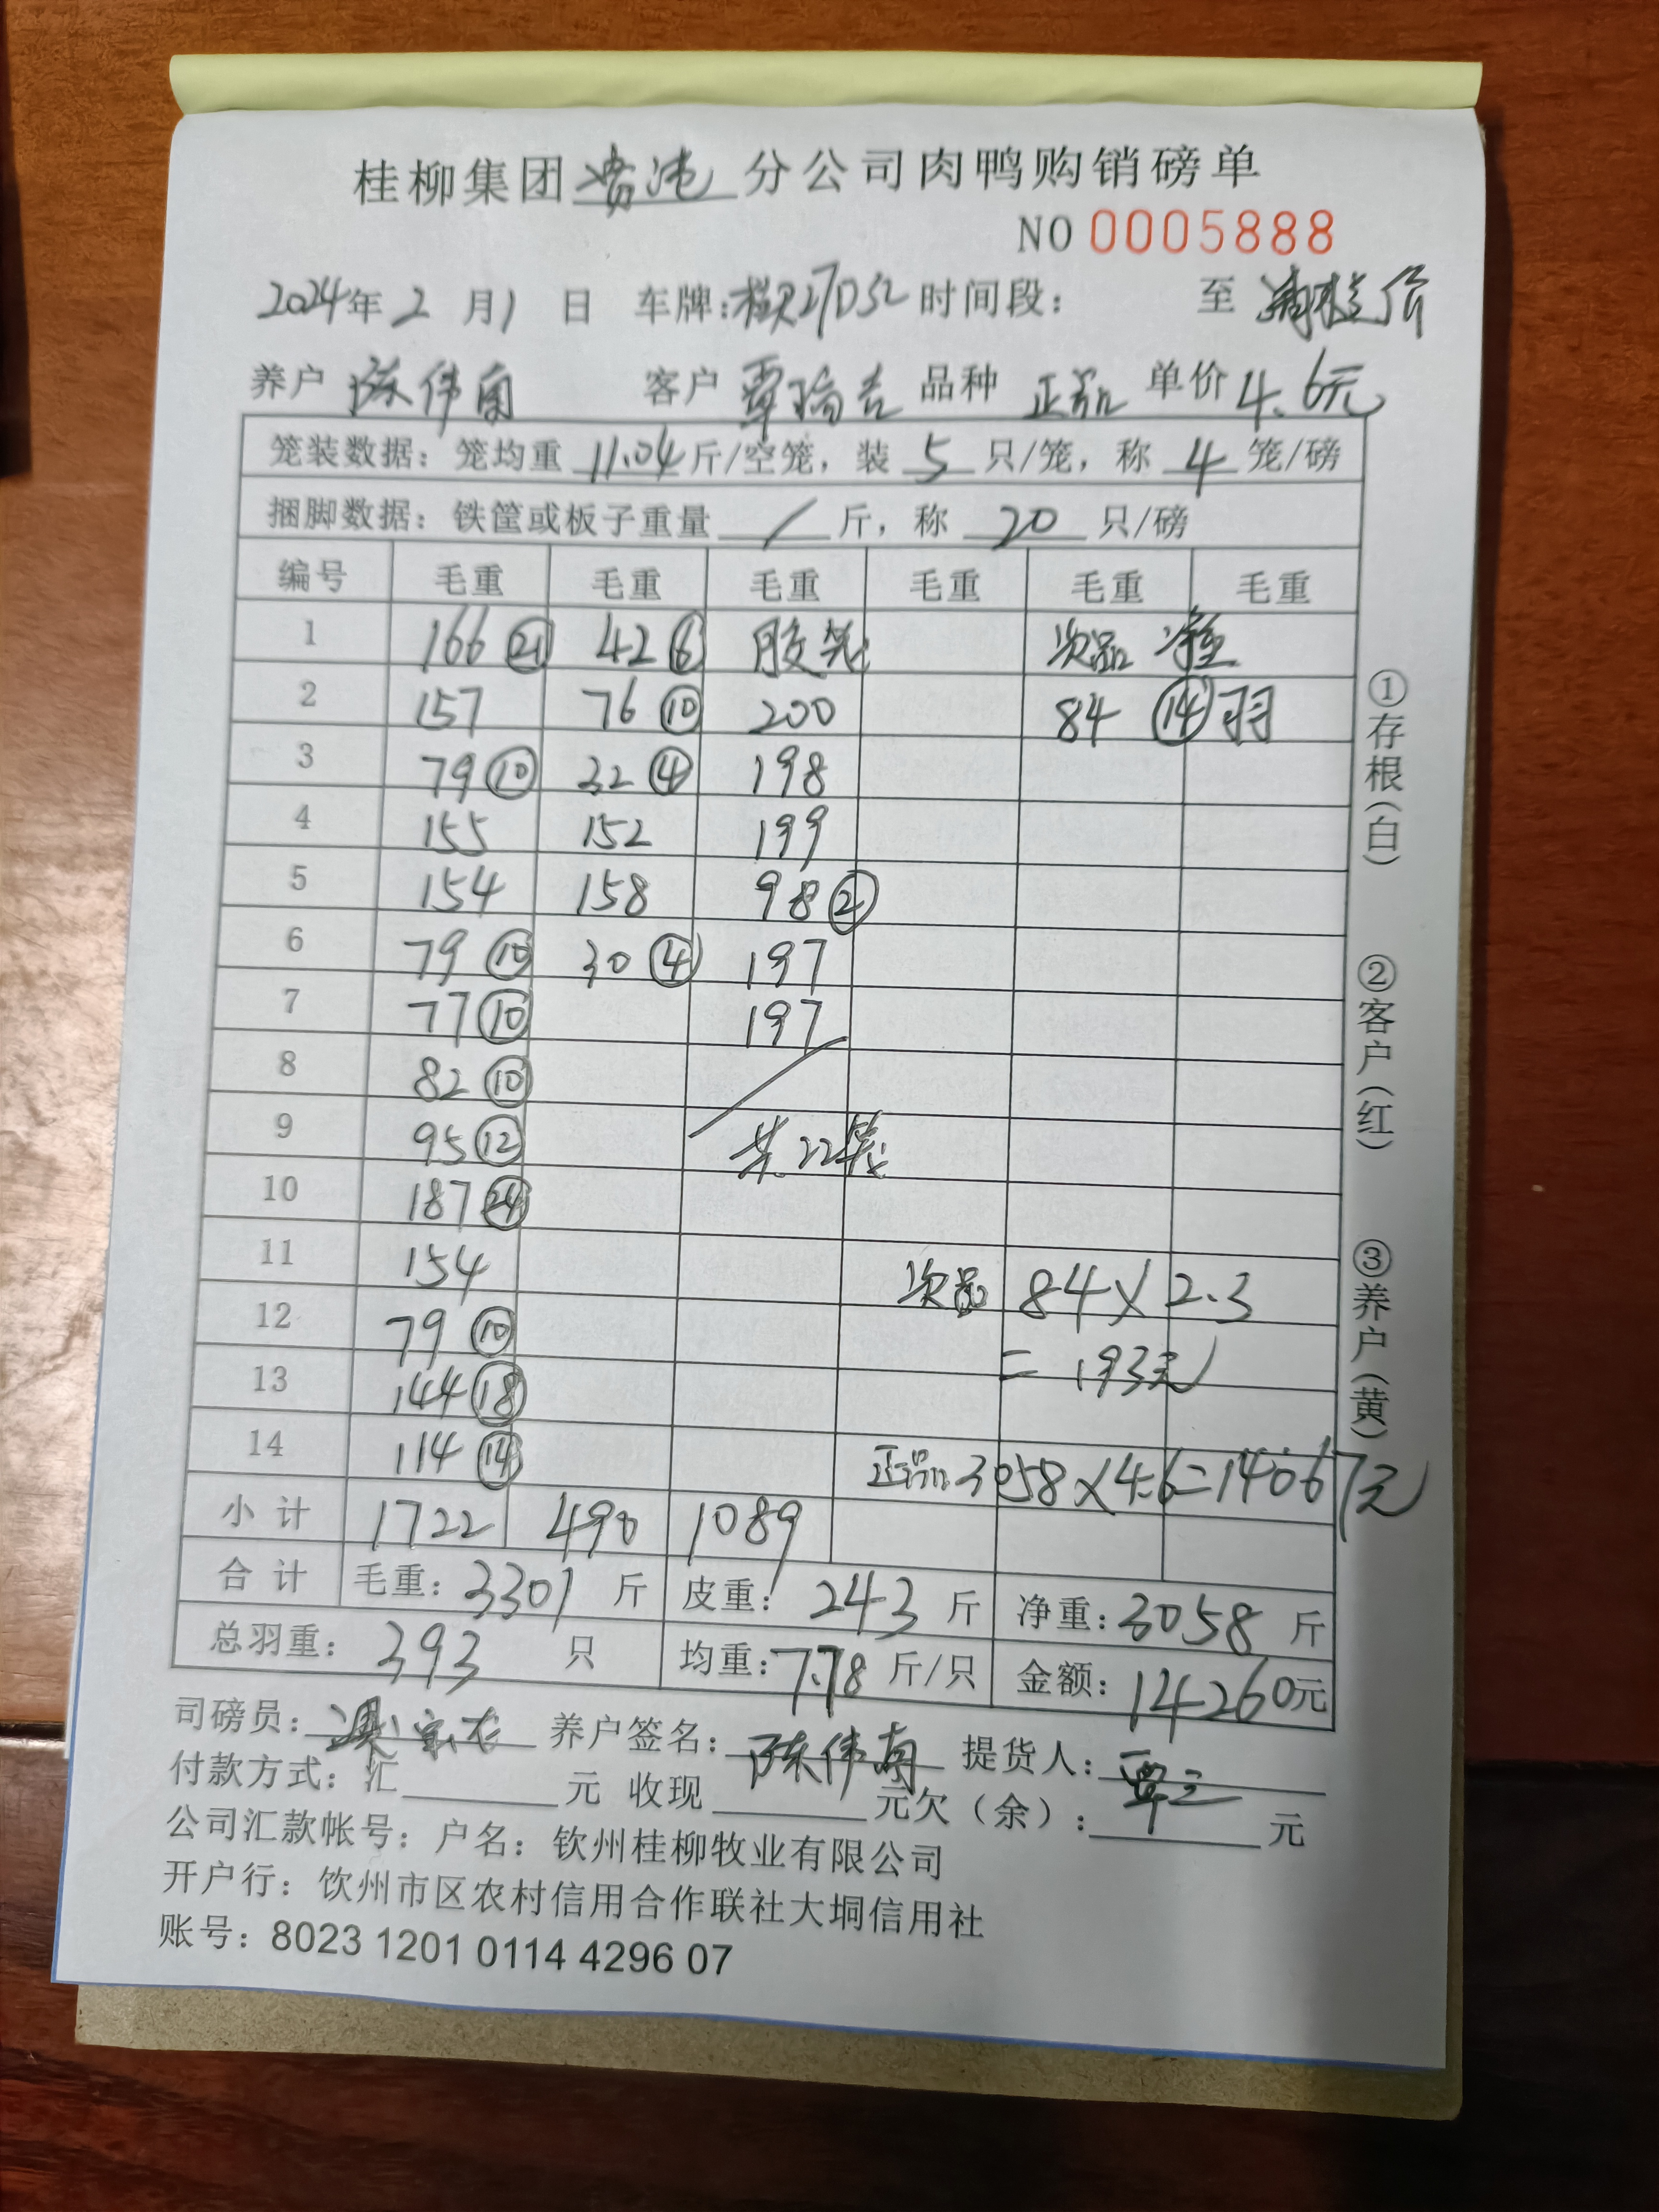 桂柳集团 贵港 分公司肉鸭购销磅单
NO 0005888
2024年 2 月 1 日 车牌: 时间段： 至
养户 陈伟南 客户 覃瑞吉 品种 正品 单价 4.6元
笼装数据：笼均重 11.04 斤/空笼，装 5 只/笼，称 4 笼/磅
捆脚数据：铁筐或板子重量 / 斤，称 20 只/磅
编号 毛重 毛重 毛重 毛重 毛重 毛重
1 166 ㉑ 42 ⑥ 胶笼 次品 净重
2 157 76 ⑩ 200 84 ⑭ 羽
3 79 ⑩ 32 ④ 198
4 155 152 199
5 154 158 98 ②
6 79 ⑩ 30 ④ 197
7 77 ⑩ 197
8 82 ⑩
9 95 ⑫ 共22笼
10 187 ㉔
11 154 次品 84×2.3
12 79 ⑩ = 193元
13 144 ⑱
14 114 ⑭ 正品 3058×4.6=14067元
小 计 1722 490 1089
合 计 毛重：3301 斤 皮重：243 斤 净重：3058 斤
总羽重：393 只 均重：7.78 斤/只 金额：14260元
司磅员： 养户签名：陈伟南 提货人：覃三
付款方式：汇 元 收现 元欠（余）： 元
公司汇款帐号：户名：钦州桂柳牧业有限公司
开户行：钦州市区农村信用合作联社大垌信用社
账号：8023 1201 0114 4296 07
①存根（白）
②客户（红）
③养户（黄）